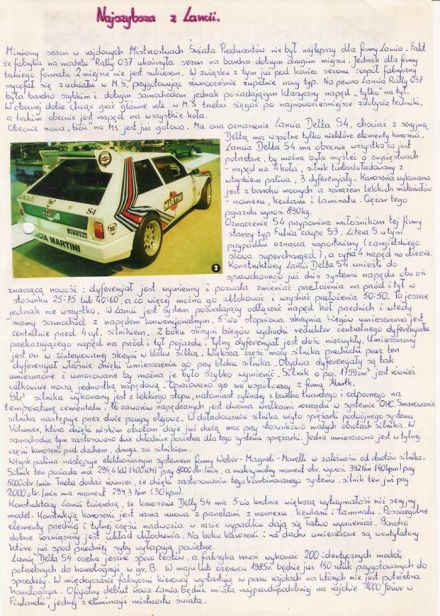 Najszybsza z Lancii.
Miniony sezon w rajdowych Mistrzostwach Świata Producentów nie był najlepszy dla firmy Lancia. Fakt
że fabryka na modelu "Rally 037" ukończyła sezon na bardzo dobrym drugim miejscu. Jednak dla firmy
takiego formatu 2 miejsce nie jest sukcesem. W związku z tym już pod koniec sezonu zespół fabryczny
wycofał się z udziału w M.Ś, przygotowując równocześnie zupełnie nowy typ. Na pewno Lancia Rally 037
była bardzo szybkim i dobrym samochodem, jednak posiadającym klasyczny napęd "tylko" na tył.
W obecnej dobie chcąc grać główne role w M.Ś trzeba sięgać po najnowocześniejsze zdobycze techniki,
a takim obecnie jest napęd na wszystkie koła.
Obecnie nowa "broń" na MŚ jest już gotowa. Ma ona oznaczenie Lancia Delta S4, chociaż z seryjną
Deltą ma wspólne tylko niektóre elementy karoserii.
Lancia Delta S4 ma obecnie wszystko co jest
potrzebne, by można było myśleć o zwycięstwach
- napęd na 4 koła, silnik turbodoładowany z
wtryskiem paliwa, 3 dyferencjały. Karoseria wykonana
jest z bardzo mocnych a zarazem lekkich materiałów
- nomexu, kevlaru i laminatu. Ciężar tego
pojazdu wynosi 890kg.
Oznaczenie S4 przypomina miłośnikom tej firmy
sławny typ Fulvia coupe S3. Litera S w tym
przypadku oznacza usportowiony (z angielskiego
słowa supercharged), a cyfra 4 napęd na obie osie.
Konstruktorzy Lancii Delta S4 wnieśli do
sprawdzonego już dziś systemu napędu obu osi
znaczącą nowość: dyferencjał jest wymienny i pozwala zmieniać przełożenia na przód i tył w
stosunku 25:75 lub 40:60, a co więcej można go zblokować i uzyskać przełożenia 50:50. To jeszcze
jednak nie wszystko. W Lancii jest system pozwalający odłączyć napęd kół przednich i wtedy
mamy samochód z napędem konwencjonalnym. 5-cio stopniowa skrzynia biegów umieszczona jest
centralnie przed 4 cyl. silnikiem. Z boku skrzyni biegów wychodzi reduktor centralnego dyferencjału
przekazującego napęd na przód i tył pojazdu. Tylny dyferencjał jest dość niezwykły. Umieszczony
jest on w zintegrowanej skrzyni w bloku silnika. Większa część mocy silnika przechodzi przez ten
dyferencjał właśnie dzięki umieszczeniu go przy bloku silnika. Obydwa dyferencjały są tak
umieszczone i umocowane by można je było szybko wymienić. Silnik o poj. 1759cm³ jest również
całkowicie nową jednostką napędową. Opracowano go we współpracy z firmą Abarth.
Blok silnika wykonany jest z lekkiego stopu, natomiast cylindry z bardzo twardego i odpornego na
temperaturę cementatu. 16 zaworów napędzanych jest dwoma wałkami rozrządu w systemie OHC. Smarowanie
silnika następuje przez dwie pompy olejowe. Do doładowania silnika użyto sprężarki pochodzącej systemu
Volumex, która dzięki niskim obrotom daje już dużą moc przy stosunkowo małych obrotach silnika. W
samochodzie tym zastosowano dwie chłodnice powietrza dla tego systemu sprężarki. Jedna umieszczona jest w tylnej
części karoserii pod dachem, druga za silnikiem.
Wtrysk paliwa następuje elektronicznym systemem firmy Weber-Magneti-Marelli w zależności od obrotów silnika.
Silnik ten posiada moc 294,4 kW (400KM) przy 8000 obr./min., a maksymalny moment obr. wynosi 392Nm (40kpm) przy
5000 obr./min. Trzeba dodać również, że dzięki zastosowaniu tego kombinowanego systemu, silnik ten już przy
2000 obr./min ma moment 294,3 Nm (30kpm).
Konstruktorzy Lancii twierdzą, że karoseria Delty S4 ma 5-cio krotnie większą wytrzymałość niż seryjny
model. Konstrukcją karoserii jest rama rurowa z panelami z nomexu, kevlaru i laminatu. Poszczególne
elementy przedniej i tylnej części nadwozia w razie wypadku dają się łatwo wymieniać. Bardzo
dobrze rozwiązany jest układ chłodzenia. Na boku karoserii i na dachu umieszczone są wentylatory
które już spod przedniej szyby wyłapują powietrze.
Lancię Deltę S4 czeka jeszcze sporo testów, a fabryka musi wykonać 200 identycznych modeli
potrzebnych do homologacji w gr. B. W maju lub czerwcu 1985r będzie już 150 sztuk przygotowanych do
sprzedaży. W międzyczasie fabryczni kierowcy wystartują w paru rajdach na których nie jest potrzebna
homologacja. Oficjalny debiut nowa Lancia będzie miała najprawdopodobniej na rajdzie "1000 Jezior" w
Finlandii, jednej z eliminacji mistrzostw świata.
MARTINI
S4
2